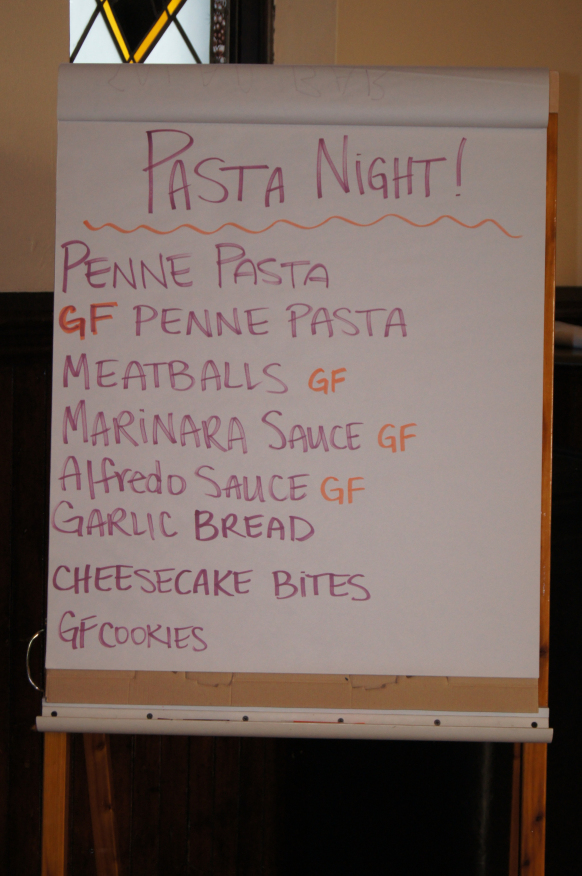 PASTA NiGHT!
PENNE PASTA
GF PENNE PASTA
MEATBALLS GF
MARiNARA SAUCE GF
Alfredo SAUCE GF
GARLIC BREAD
CHEESECAKE BiTES
GF COOKIES